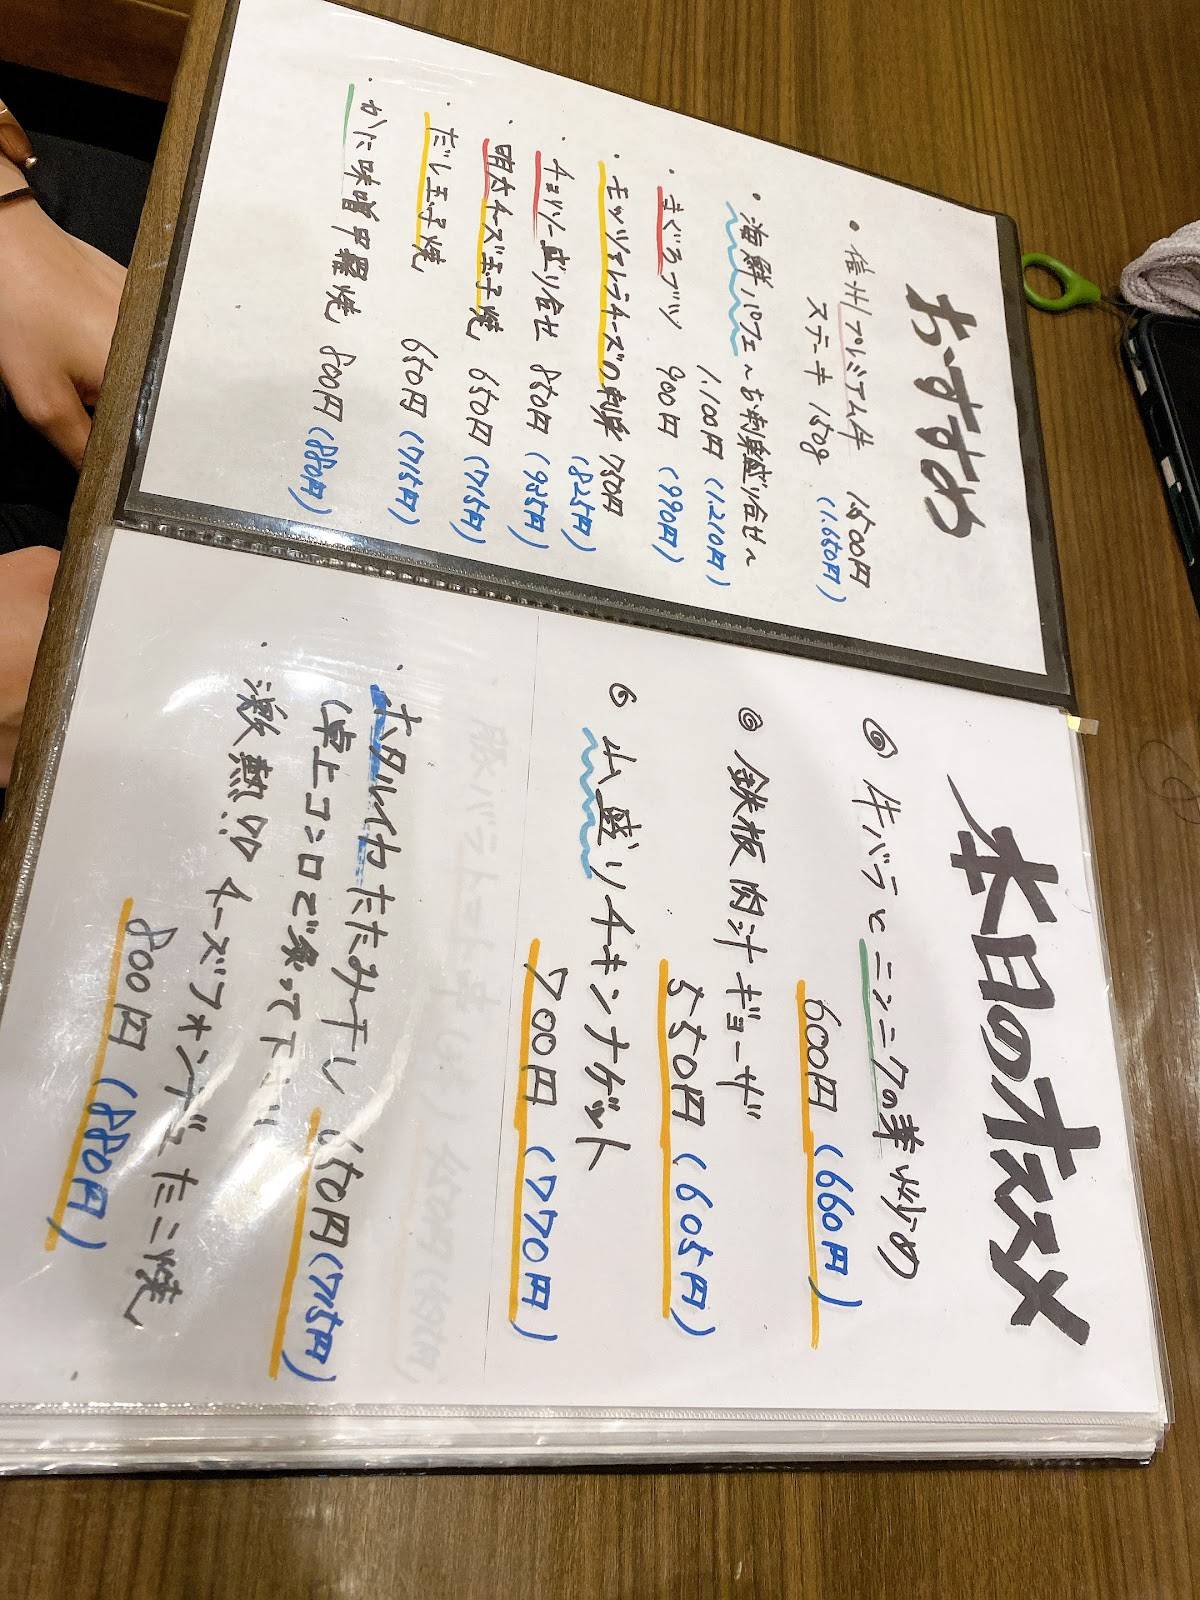 おすすめ
・信州プレミアム牛
ステーキ 150g 1500円
(1.650円)
・海鮮パフェ～お刺身盛り合せ～
1.100円 (1.210円)
・まぐろブツ 900円 (990円)
・モッツァレラチーズの刺身 750円
(825円)
・チョリソー盛り合せ 850円 (935円)
・明太チーズ玉子焼 650円 (715円)
・だし玉子焼 650円 (715円)
・かに味噌甲羅焼 800円 (880円)
本日のオススメ
◎ 牛バラとニンニクの芽炒め
600円 (660円)
◎ 鉄板肉汁ギョーザ
550円 (605円)
◎ 山盛りチキンナゲット
700円 (770円)
・ホタルイカたたみ干し 650円 (715円)
(卓上コンロで炙って下さい
・激熱!! チーズフォンデュたこ焼
800円 (880円)